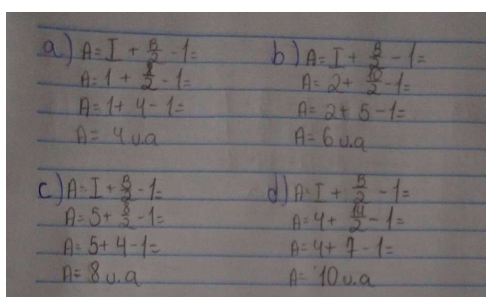 a) A = I + B/2 - 1 =
A = 1 + 8/2 - 1 =
A = 1 + 4 - 1 =
A = 4 u.a
b) A = I + B/2 - 1 =
A = 2 + 10/2 - 1 =
A = 2 + 5 - 1 =
A = 6 u.a
c) A = I + B/2 - 1 =
A = 5 + 8/2 - 1 =
A = 5 + 4 - 1 =
A = 8 u.a
d) A = I + B/2 - 1 =
A = 4 + 14/2 - 1 =
A = 4 + 7 - 1 =
A = 10 u.a